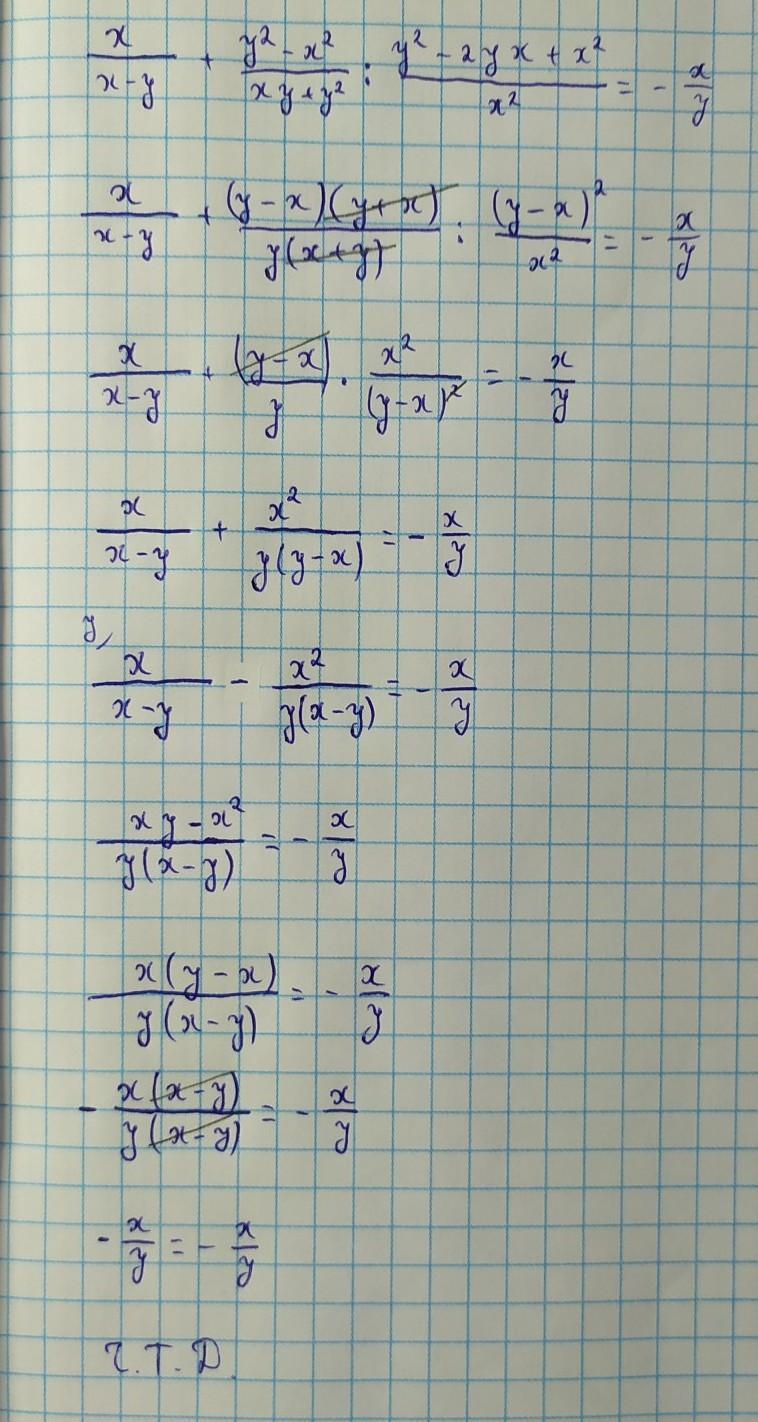 x/(x-y) + (y² - x²)/(xy + y²) : (y² - 2yx + x²)/x² = - x/y
x/(x-y) + (y - x)(y + x)/y(x + y) : (y - x)²/x² = - x/y
x/(x-y) + (y - x)/y · x²/(y-x)² = - x/y
x/(x-y) + x²/y(y-x) = - x/y
y/
x/(x-y) - x²/y(x-y) = - x/y
(xy - x²)/y(x-y) = - x/y
x(y - x)/y(x-y) = - x/y
- x(x-y)/y(x-y) = - x/y
- x/y = - x/y
Ч.Т.Д.